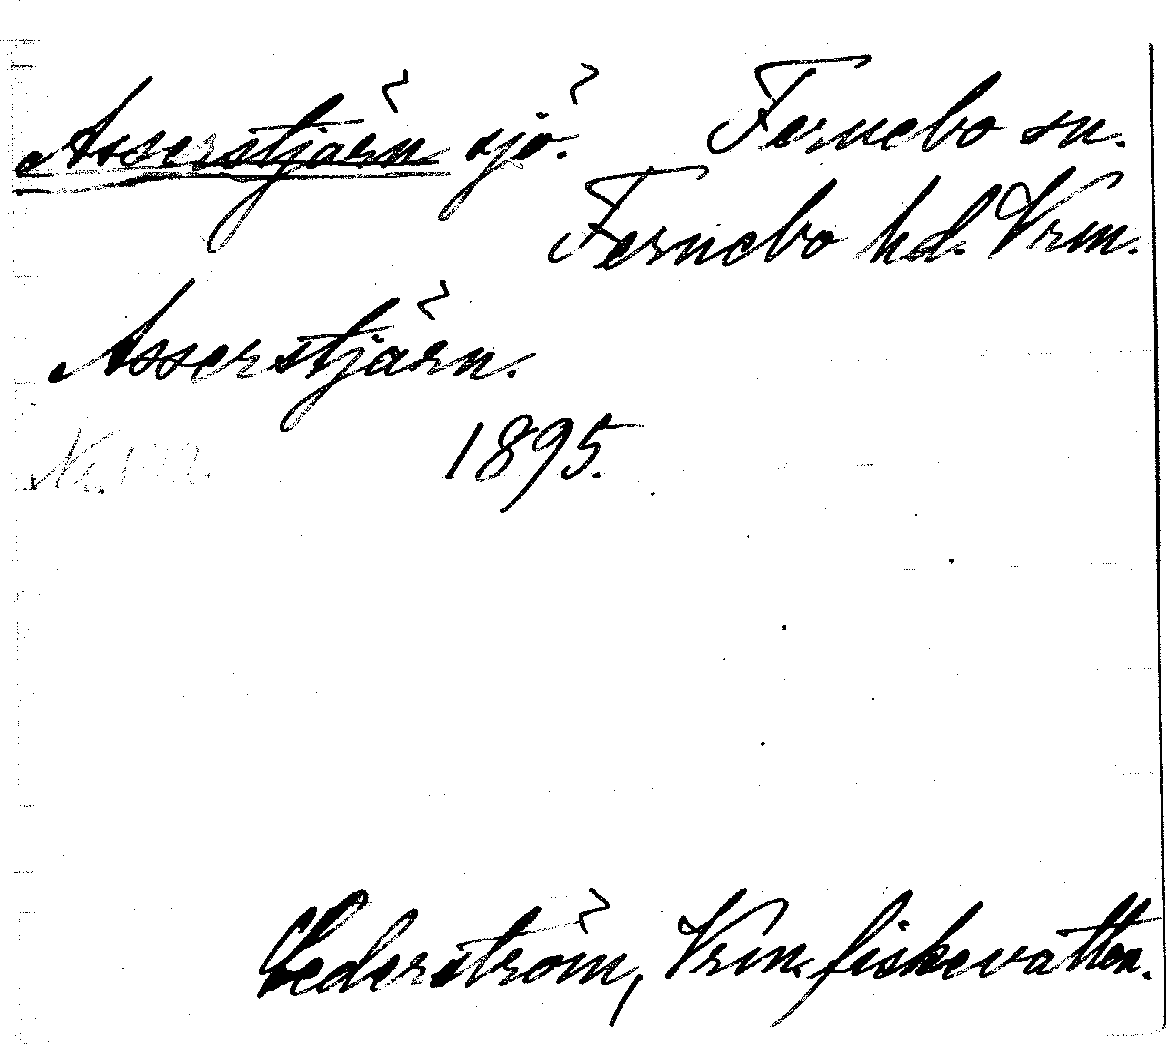 Asserstjärn sjö. Fernebo sn.
Fernebo hd. Vrm.
Asserstjärn.
Nr.
1895.
Cederström, Vrm. fiskevatten.